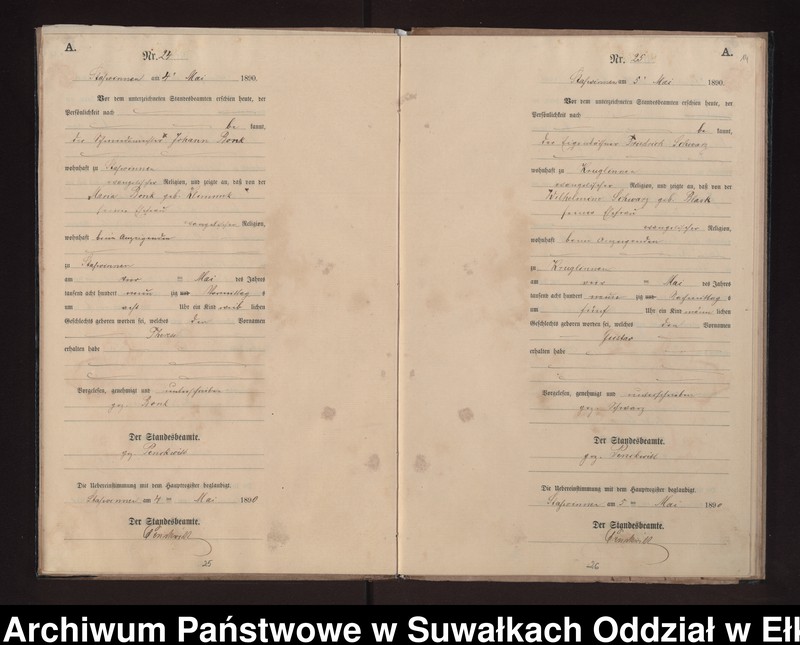 A.
Nr. 24
am 4ᵗ Mai 1890.
Vor dem unterzeichneten Standesbeamten erschien heute, der
Persönlichkeit nach
be kannt,
der Johann Bonk
wohnhaft zu
evangelischer Religion, und zeigte an, daß von der
Maria Bonk geb.
seiner Ehefrau
evangelischer Religion,
wohnhaft beim Anzeigenden
zu
am Mai des Jahres
tausend acht hundert neun zig Vormittag s
um acht Uhr ein Kind weib lichen
Geschlechts geboren worden sei, welches den Vornamen
erhalten habe
Vorgelesen, genehmigt und unterschrieben
gez. Bonk
Der Standesbeamte.
gez.
Die Uebereinstimmung mit dem Hauptregister beglaubigt.
am 4ᵗᵉⁿ Mai 1890
Der Standesbeamte.
25
A.
Nr. 25
am 5ᵗ Mai 1890.
Vor dem unterzeichneten Standesbeamten erschien heute, der
Persönlichkeit nach
be kannt,
der Eigenkäthner Friedrich Schwarz
wohnhaft zu Kruglinnen
evangelischer Religion, und zeigte an, daß von der
Wilhelmine Schwarz geb.
seiner Ehefrau
evangelischer Religion,
wohnhaft beim Anzeigenden
zu Kruglinnen
am Mai des Jahres
tausend acht hundert neun zig Nachmittag s
um fünf Uhr ein Kind männ lichen
Geschlechts geboren worden sei, welches den Vornamen
Gustav
erhalten habe
Vorgelesen, genehmigt und unterschrieben
gez. Schwarz
Der Standesbeamte.
gez.
Die Uebereinstimmung mit dem Hauptregister beglaubigt.
am 5ᵗᵉⁿ Mai 1890
Der Standesbeamte.
26
Archiwum Państwowe w Suwałkach Oddział w Ełk